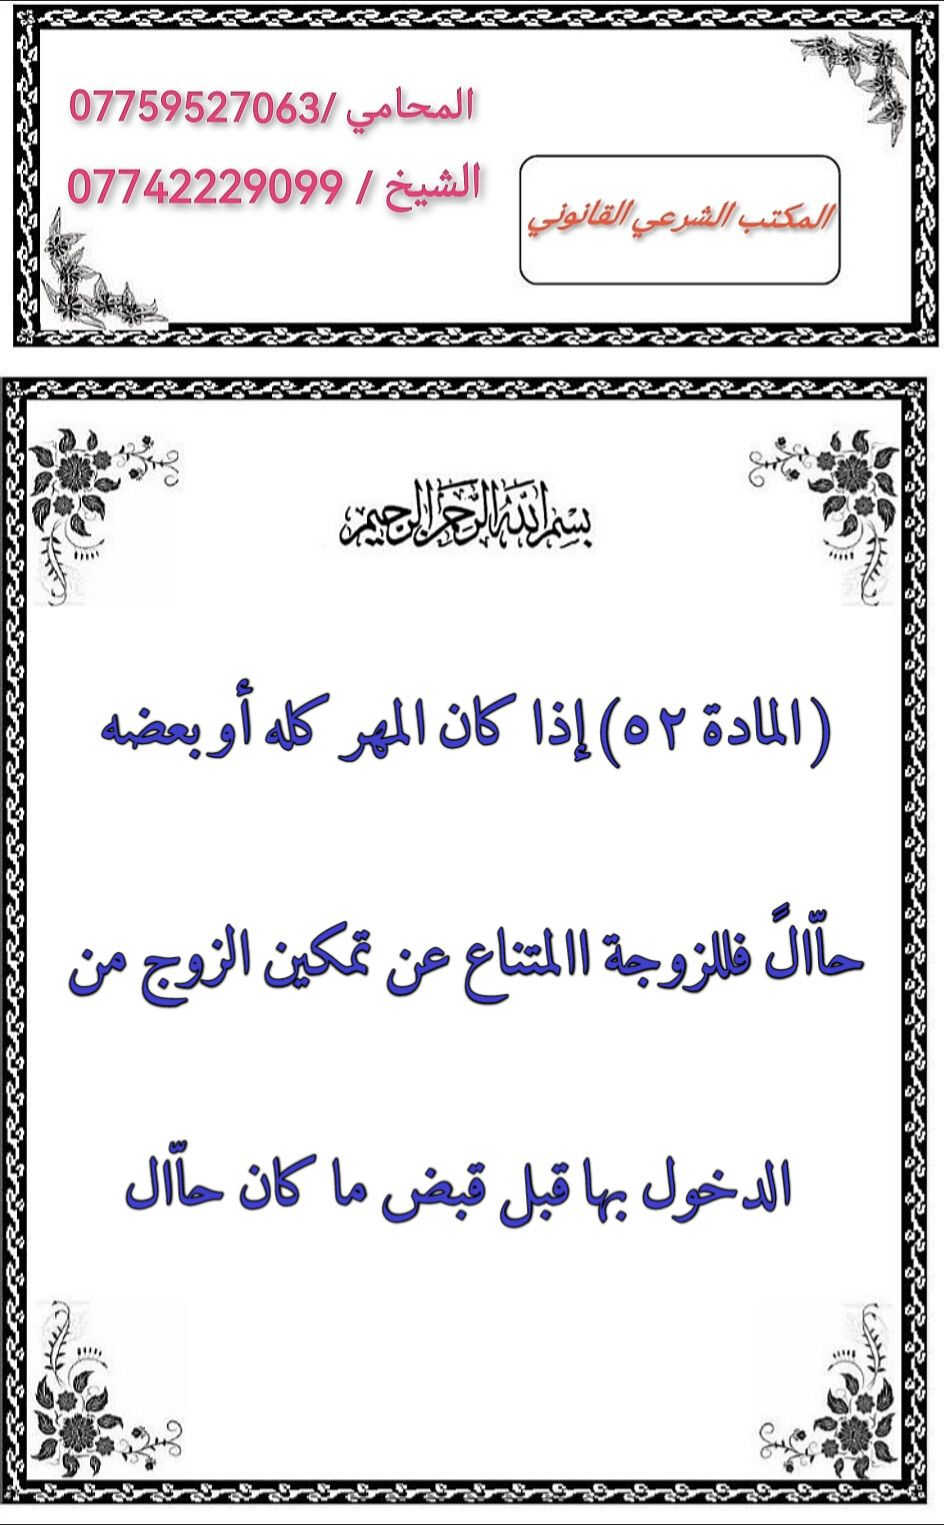 المحامي /07759527063
الشيخ / 07742229099
المكتب الشرعي القانوني
بسم الله الرحمن الرحيم
( المادة ٥٢) إذا كان المهر كله أو بعضه
حاّالً فللزوجة االمتناع عن تمكين الزوج من
الدخول بها قبل قبض ما كان حاّال